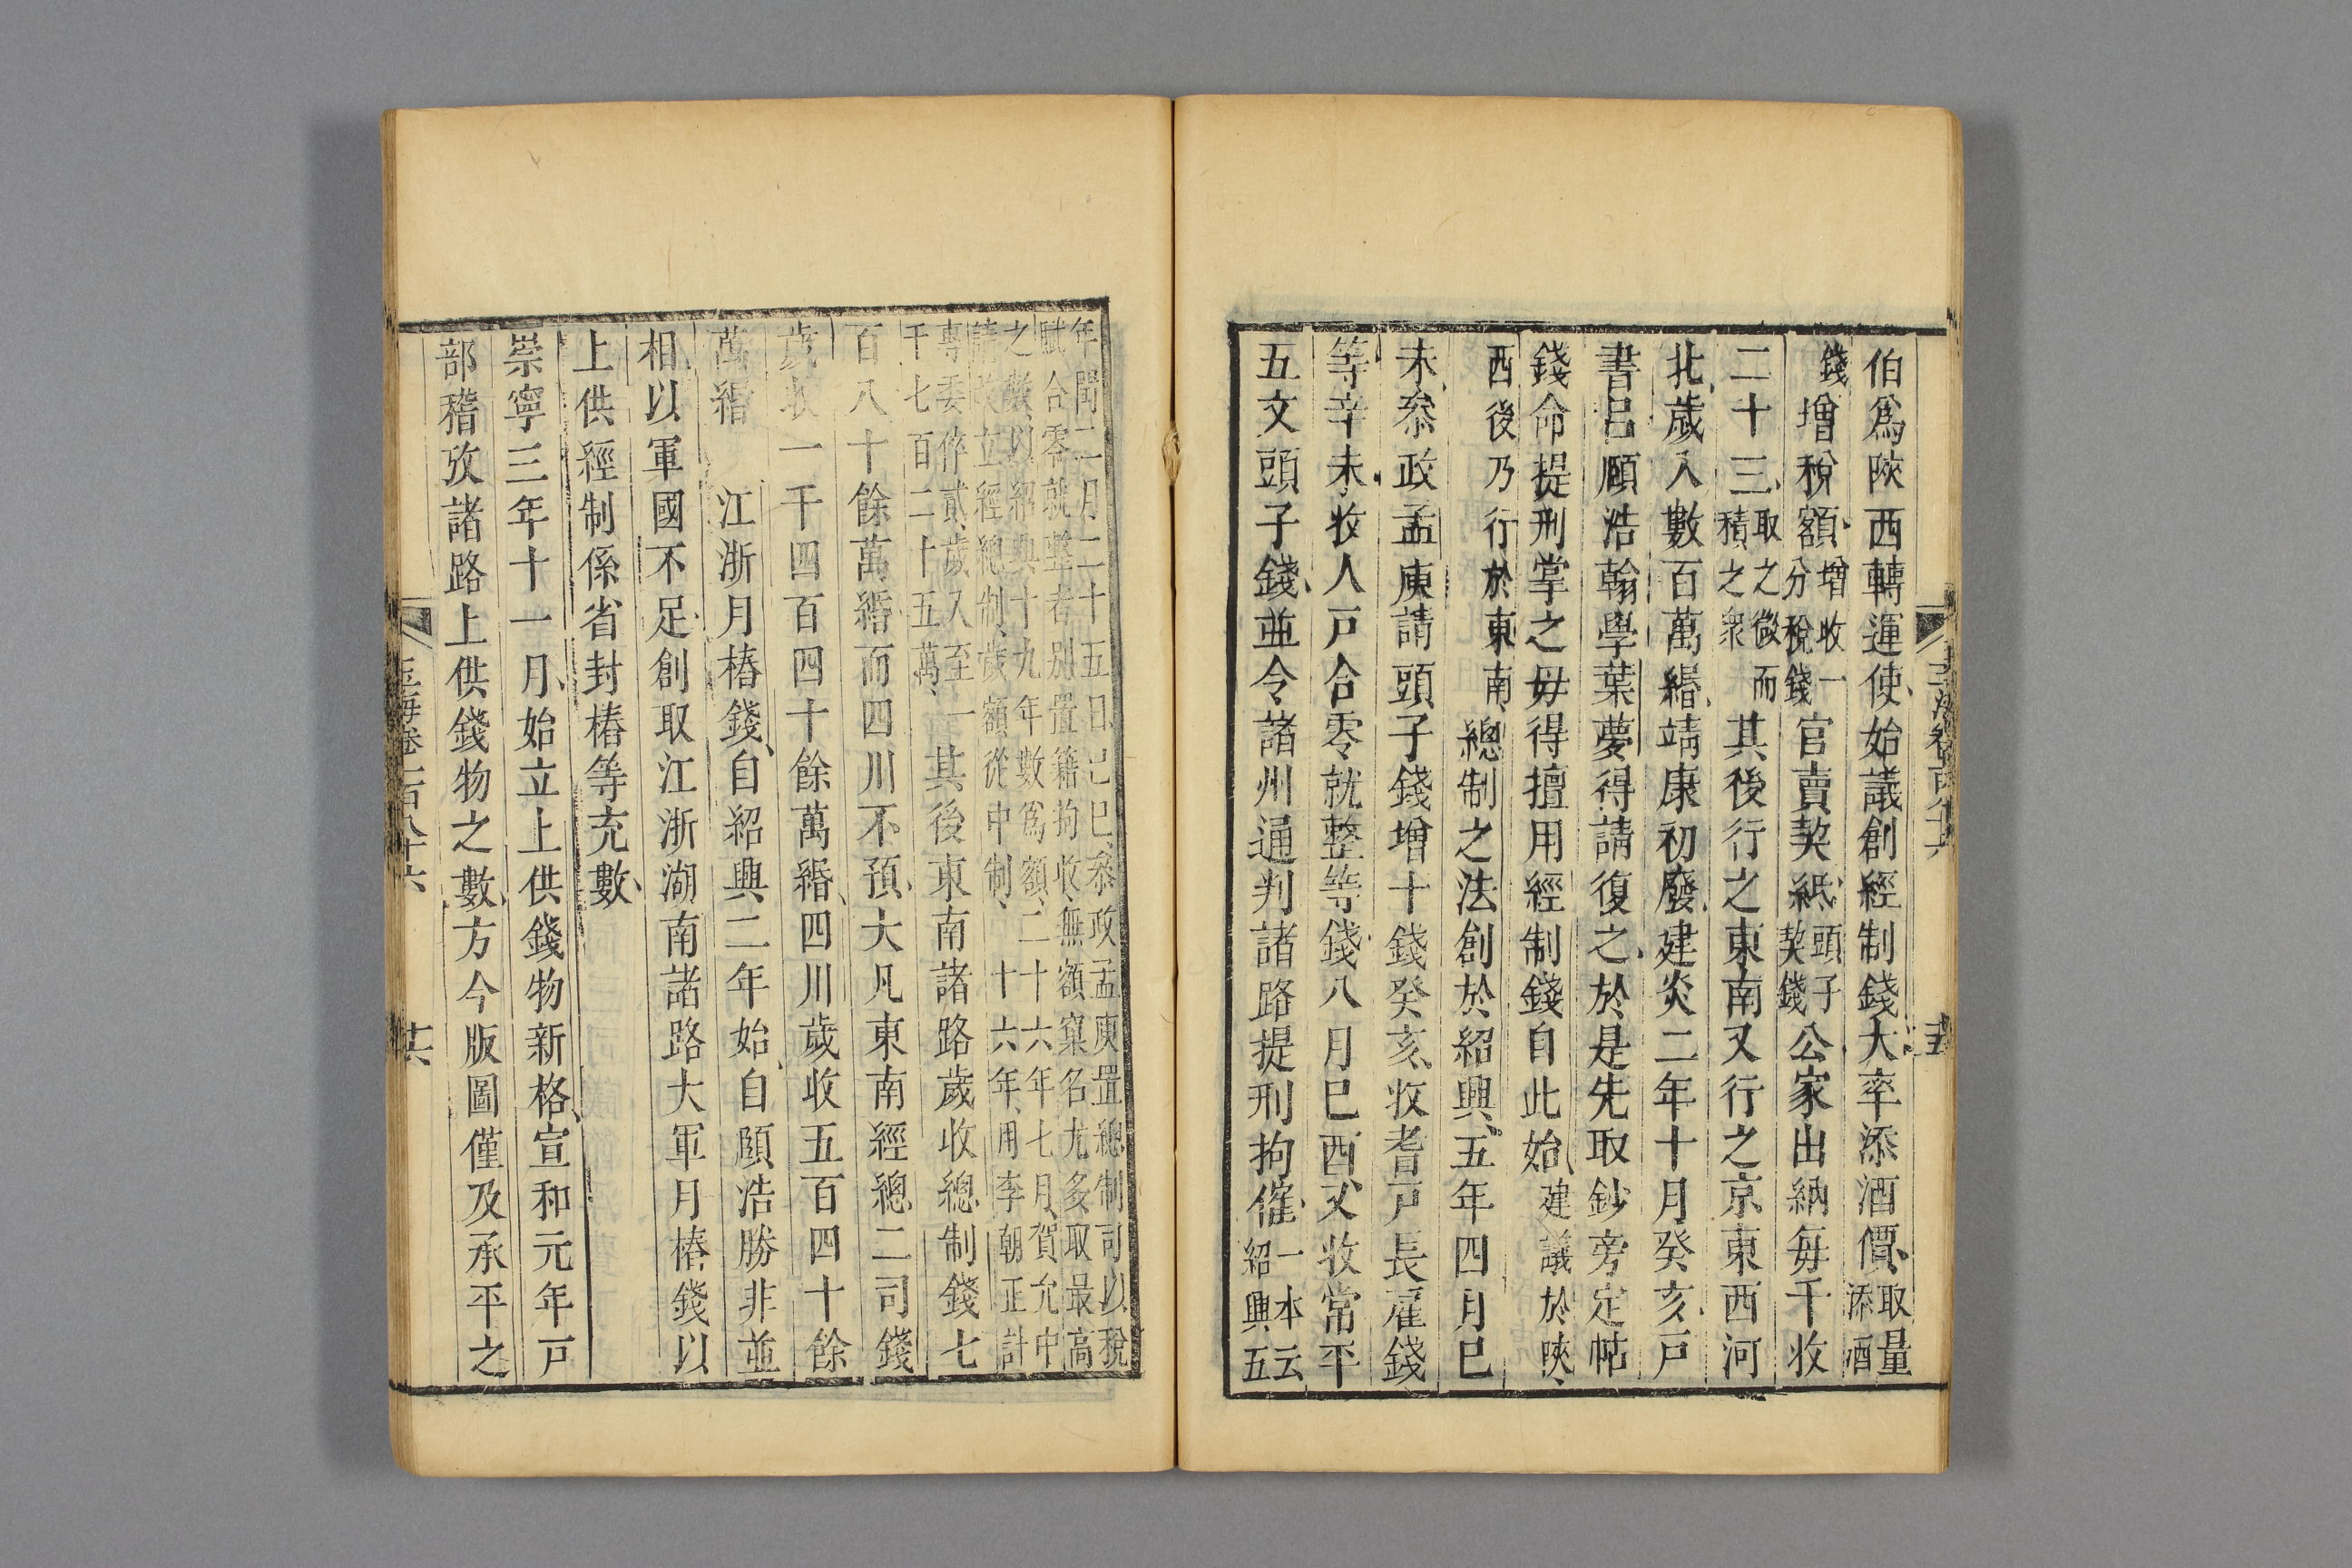 伯爲陜西轉運使、始議創經制錢、大率添酒價、取量添酒
錢、增稅額、增收一分稅錢官賣契紙、頭子契錢公家出納每千收
二十三、取之微而積之衆其後行之東南又行之京東西河
北、歲入數百萬緡、靖康初廢、建炎二年十月癸亥、戸
書呂頤浩翰學葉夢得請復之、於是先取鈔旁定帖
錢命提刑掌之毋得擅用經制錢自此始、建議於陜、
西後乃行於東南、總制之法創於紹興、五年四月巳
未、叅政孟庾請頭子錢增十錢癸亥、收耆戸長雇錢
等、辛未、收人戸合零就整等錢、八月巳酉、又收常平
五文頭子錢、並令諸州通判諸路提刑拘催、一本云紹興五
玉海卷一百八十六
年閏二月二十五日己巳、叅政孟庾置總制司以稅
賦合零就整者別置籍拘收、無額窠名尤多取最高
之數、以紹興十九年數爲額、二十六年七月、賀允中
請改立經總制、歲額從中制、十六年、用李朝正計
專委倅貳、歲入至一
千七百二十五萬、其後東南諸路歲收總制錢七
百八十餘萬緡、而四川不預、大凡東南經總二司錢
歲收一千四百四十餘萬緡、四川歲收五百四十餘
萬緡　江浙月樁錢、自紹興二年始、自頤浩勝非並
相、以軍國不足、創取江浙湖南諸路大軍月樁錢、以
上供經制係省封樁等充數、
崇寧三年十一月、始立上供錢物新格、宣和元年戸
部稽攷諸路上供錢物之數、方今版圖僅及承平之
玉海卷一百八十六